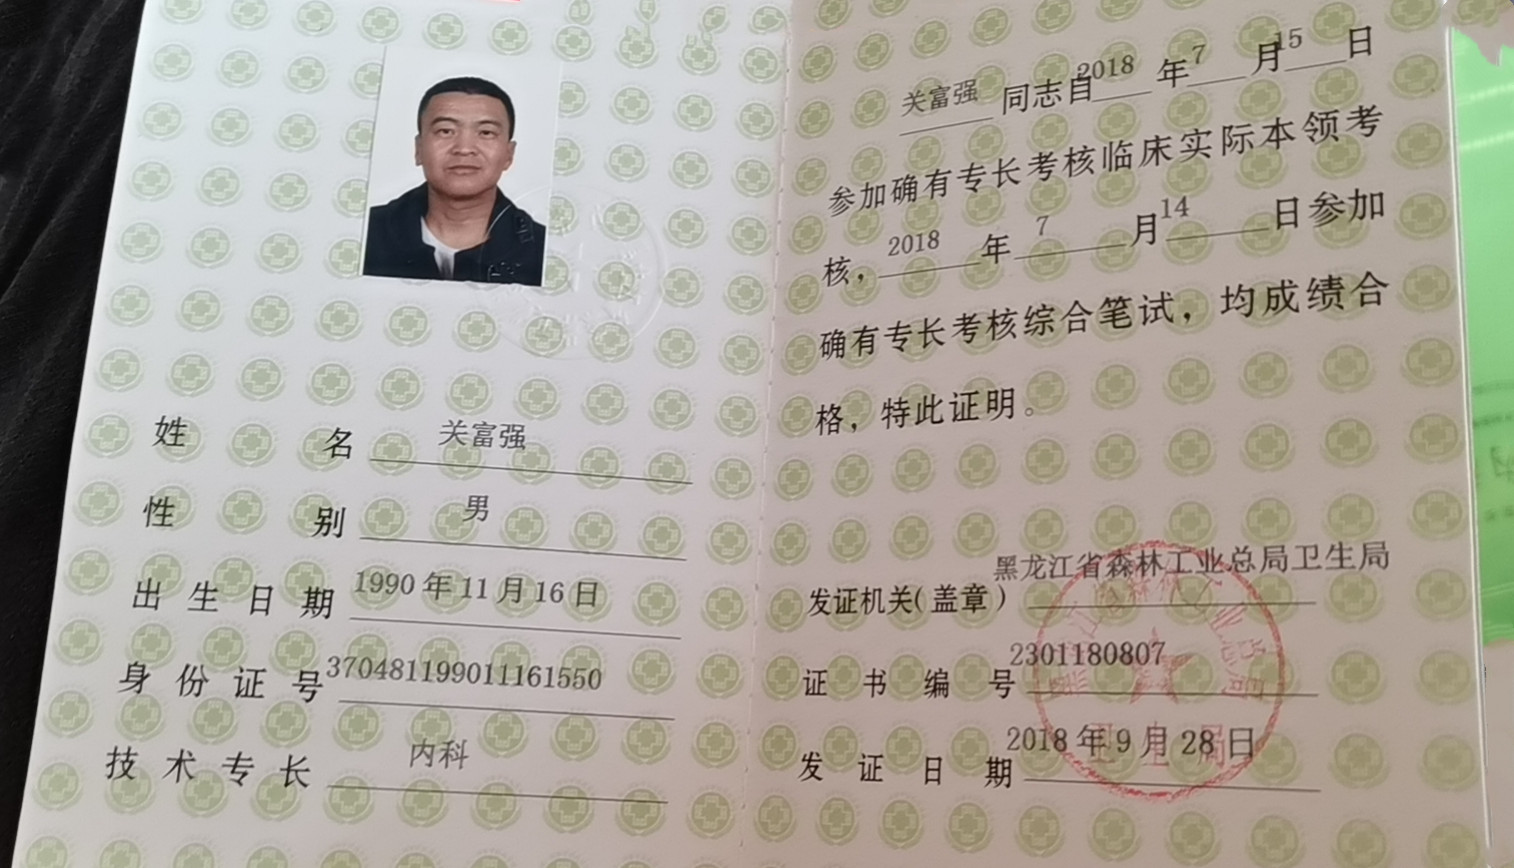 姓名 关富强
性别 男
出生日期 1990年11月16日
身份证号 370481199011161550
技术专长 内科
关富强 同志自2018年7月15日
参加确有专长考核临床实际本领考
核，2018年7月14日参加
确有专长考核综合笔试，均成绩合
格，特此证明。
发证机关（盖章）黑龙江省森林工业总局卫生局
证书编号 2301180807
发证日期 2018年9月28日
卫生局